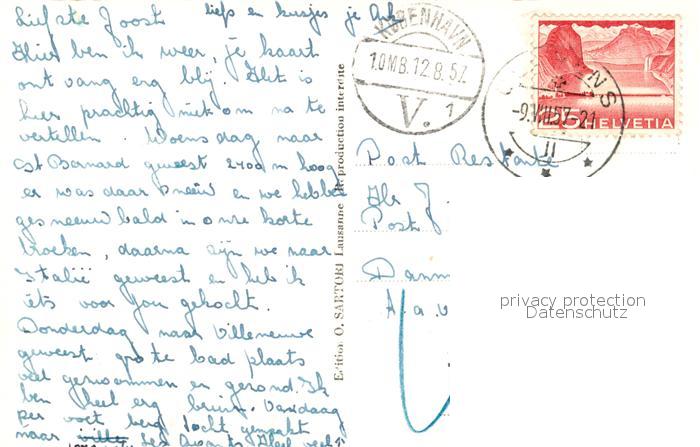 Liefste Joost liefs en kusjes je Ank
Hier ben ik weer, je kaart
ontvang erg blij. Het is
hier prachtig niet om na te
vertellen Woensdag naar
St Bernard geweest 2400 m hoog
er was daar sneeuw en we hebben
gesneeuwbald in onze korte
broeken, daarna zijn we naar
Italië geweest en heb ik
iets voor jou gekocht.
Donderdag naar Villeneuve
geweest grote bad plaats
veel gezwommen en gezond. Ik
ben heel erg bruin. Vandaag
per voet berg tocht gemaakt
naar Les Avants Heel veel
Edition O. SARTORI Lausanne Reproduction interdite
KØBENHAVN
10MB.12.8.57.
V. 1
-9.VIII.57-21
11
HELVETIA
Post Restante
Hr J.
Post
Danm
privacy protection
Datenschutz